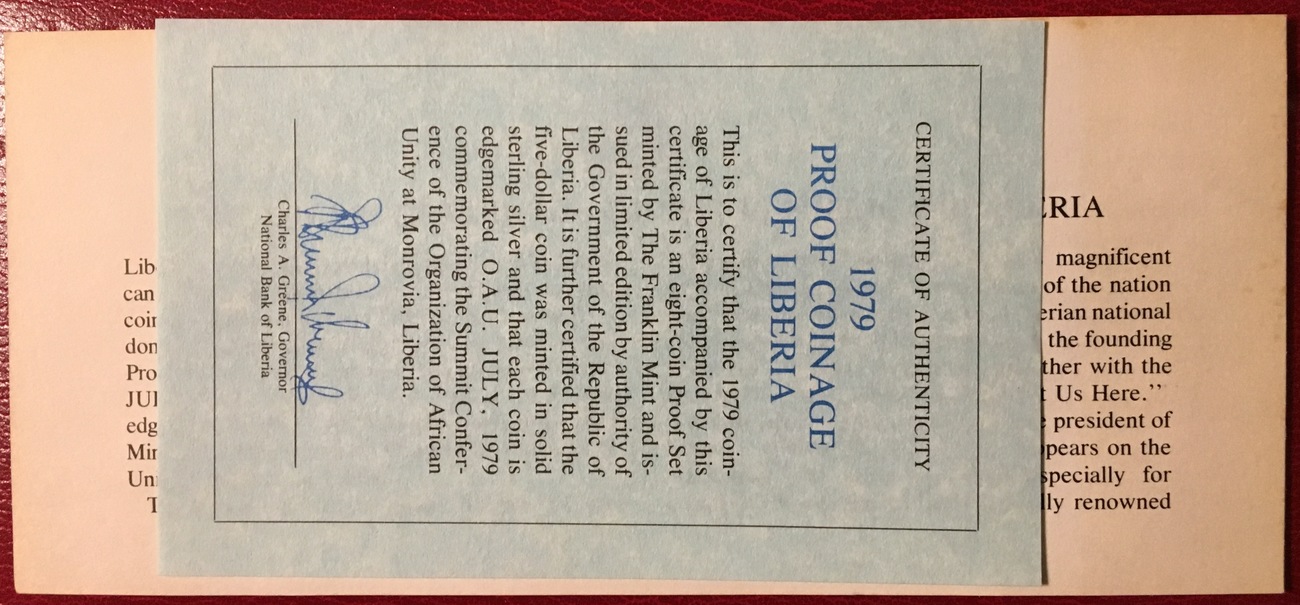 CERTIFICATE OF AUTHENTICITY
1979
PROOF COINAGE
OF LIBERIA
This is to certify that the 1979 coin-
age of Liberia accompanied by this
certificate is an eight-coin Proof Set
minted by The Franklin Mint and is-
sued in limited edition by authority of
the Government of the Republic of
Liberia. It is further certified that the
five-dollar coin was minted in solid
sterling silver and that each coin is
edgemarked O.A.U. JULY, 1979
commemorating the Summit Confer-
ence of the Organization of African
Unity at Monrovia, Liberia.
Charles A. Greene, Governor
National Bank of Liberia
magnificent
of the nation
national
the founding
with the
Us Here.”
president of
on the
for
renowned